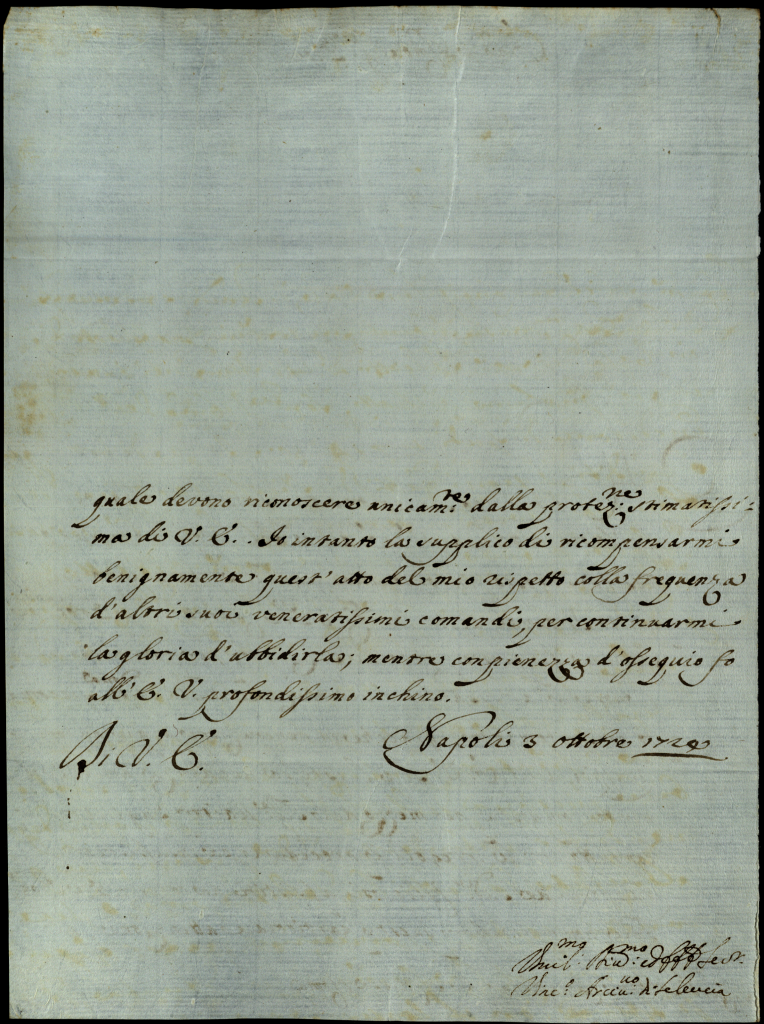 quale devono riconoscere unicam.te dalla protez.ne stimatissi-
ma di V. E.. Io intanto la supplico di ricompensarmi
benignamente quest'atto del mio rispetto colla frequenza
d'altri suoi veneratissimi comandi, per continuarmi
la gloria d'ubbidirla; mentre con pienezza d'ossequio fo
all'E. V. profondissimo inchino.
Di V. E. Napoli 3 ottobre 1724
Umil.mo
Vinc.o Arciv.uo di Seleucia